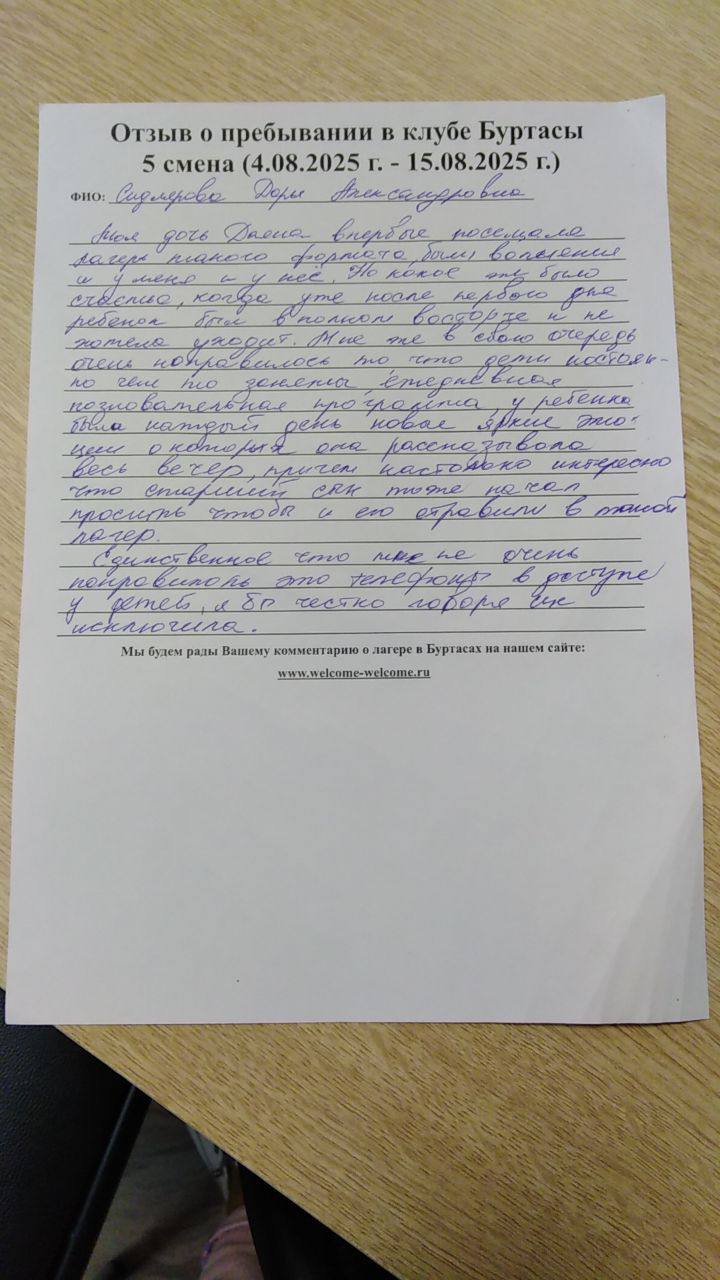 Отзыв о пребывании в клубе Буртасы
5 смена (4.08.2025 г. - 15.08.2025 г.)
ФИО: Александровна
Моя дочь впервые посещала
лагерь такого формата, были волнения
и у меня и у неё. Но какое же было
счастье, когда уже после первого дня
ребенок был в полном восторге и не
хотела уходит. Мне же в свою очередь
очень понравилось то что дети постоян-
но чем то заняты, ежедневная
познавательная программа, у ребенка
была каждый день новые яркие эмо-
ции о которых она рассказывала
весь вечер, причем настолько интересно
что старший сын тоже начал
просить чтобы и его отравили в такой
лагер.
Единственное что мне не очень
понравилось это телефоны в доступе
у детей, я бы честно говоря их
исключила.
Мы будем рады Вашему комментарию о лагере в Буртасах на нашем сайте:
www.welcome-welcome.ru